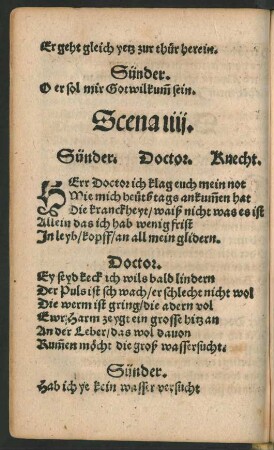 Er geht gleich yetz zur thür herein.
Sünder.
O er sol mir Gotwilkum̃ sein.
Scena iiij.
Sünder. Doctor. Knecht.
HErr Doctor ich klag euch mein not
Wie mich heütb tags ankum̃en hat
Die kranckheyt/waiß nicht was es ist
Allein das ich hab wenig frist
In leyb/kopff/an all mein glidern.
Doctor.
Ey seyd keck ich wils bald lindern
Der Puls ist schwach/er schlecht nicht wol
Die werm ist gring/die adern vol
Ewr Harm zeygt ein grosse hitz an
An der Leber/das wol dauon
Kum̃en möcht die groß wassersucht.
Sünder.
Hab ich ye kein wasser versucht